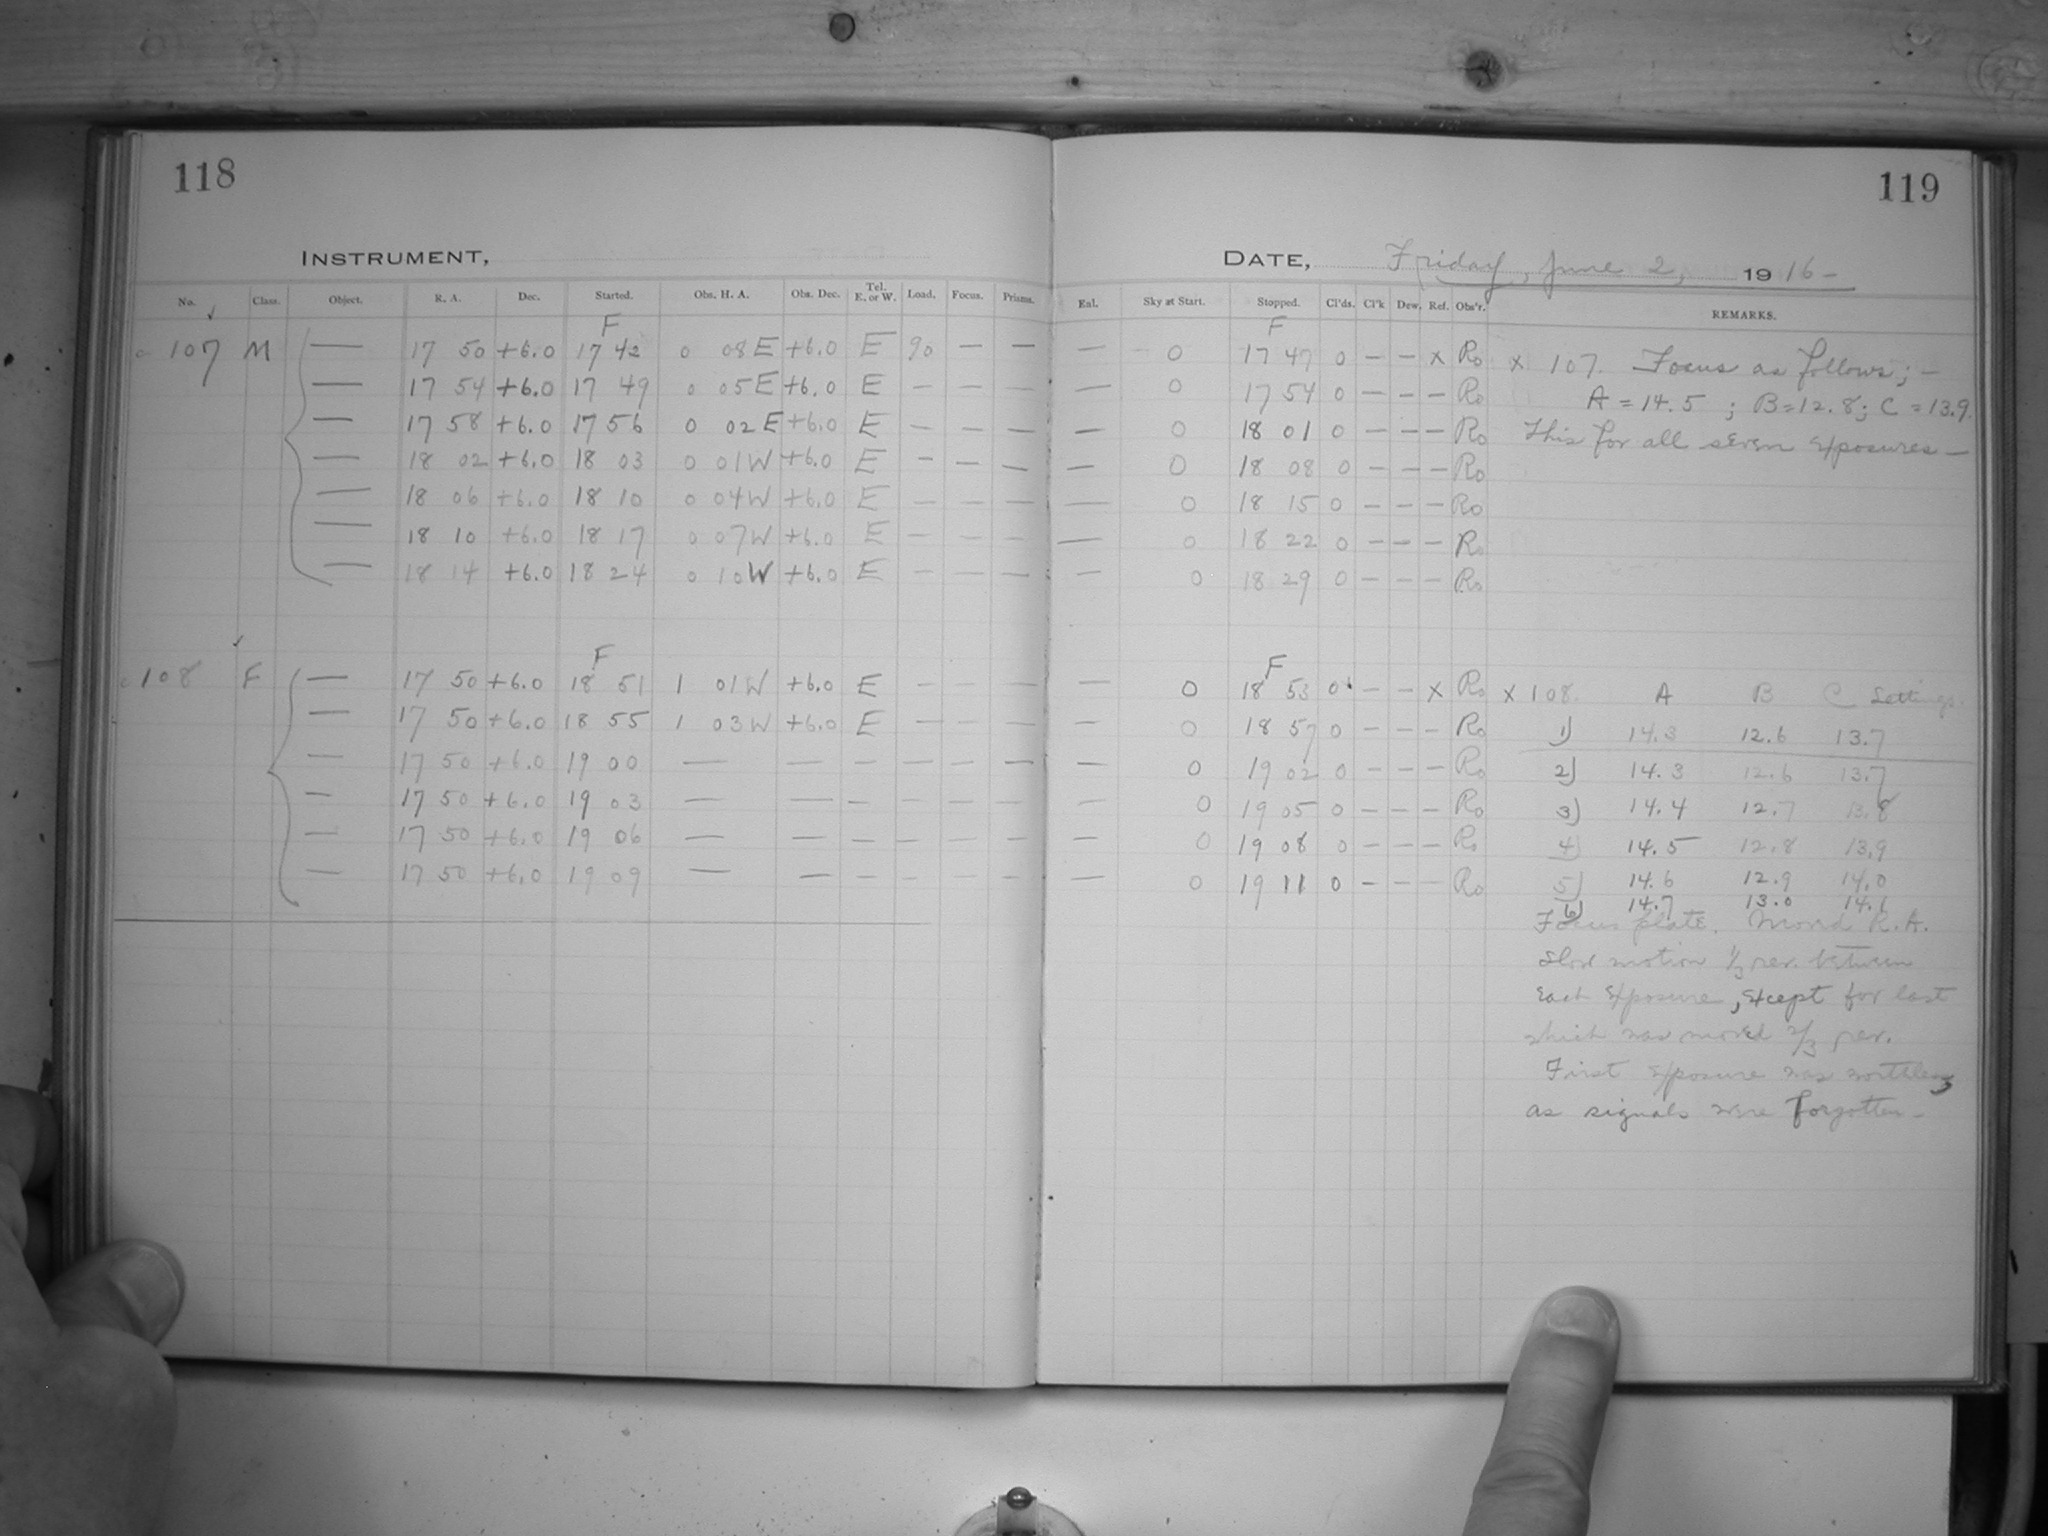 118
INSTRUMENT,
No. Class. Object. R. A. Dec. Started. Obs. H. A. Obs. Dec. Tel. E. or W. Load. Focus. Prisms.
F
107 M — 17 50 +6.0 17 42 0 08 E +6.0 E 90 — —
— 17 54 +6.0 17 49 0 05 E +6.0 E — — —
— 17 58 +6.0 17 56 0 02 E +6.0 E — — —
— 18 02 +6.0 18 03 0 01 W +6.0 E — — —
— 18 06 +6.0 18 10 0 04 W +6.0 E — — —
— 18 10 +6.0 18 17 0 07 W +6.0 E — — —
— 18 14 +6.0 18 24 0 10 W +6.0 E — — —
F
108 F — 17 50 +6.0 18 51 1 01 W +6.0 E — — —
— 17 50 +6.0 18 55 1 03 W +6.0 E — — —
— 17 50 +6.0 19 00 — — — — — —
— 17 50 +6.0 19 03 — — — — — —
— 17 50 +6.0 19 06 — — — — — —
— 17 50 +6.0 19 09 — — — — — —
119
DATE, Friday, June 2, 1916 —
Enl. Sky at Start. Stopped. Cl'ds. Cl'k Dew. Ref. Obs'r. REMARKS.
F
— 0 17 47 0 — — x Ro x 107. Focus as follows; —
— 0 17 54 0 — — — Ro A = 14.5 ; B = 12.8 ; C = 13.9.
— 0 18 01 0 — — — Ro This for all seven exposures —
— 0 18 08 0 — — — Ro
— 0 18 15 0 — — — Ro
— 0 18 22 0 — — — Ro
— 0 18 29 0 — — — Ro
F
— 0 18 53 0 — — x Ro x 108. A B C Settings.
— 0 18 57 0 — — — Ro 1) 14.3 12.6 13.7
— 0 19 02 0 — — — Ro 2) 14.3 12.6 13.7
— 0 19 05 0 — — — Ro 3) 14.4 12.7 13.8
— 0 19 08 0 — — — Ro 4) 14.5 12.8 13.9
— 0 19 11 0 — — — Ro 5) 14.6 12.9 14.0
6) 14.7 13.0 14.1
Focus plate. Moved R. A.
slow motion 1/3 rev. between
each exposure, except for last
which was moved 2/3 rev.
First exposure was worthless
as signals were forgotten —